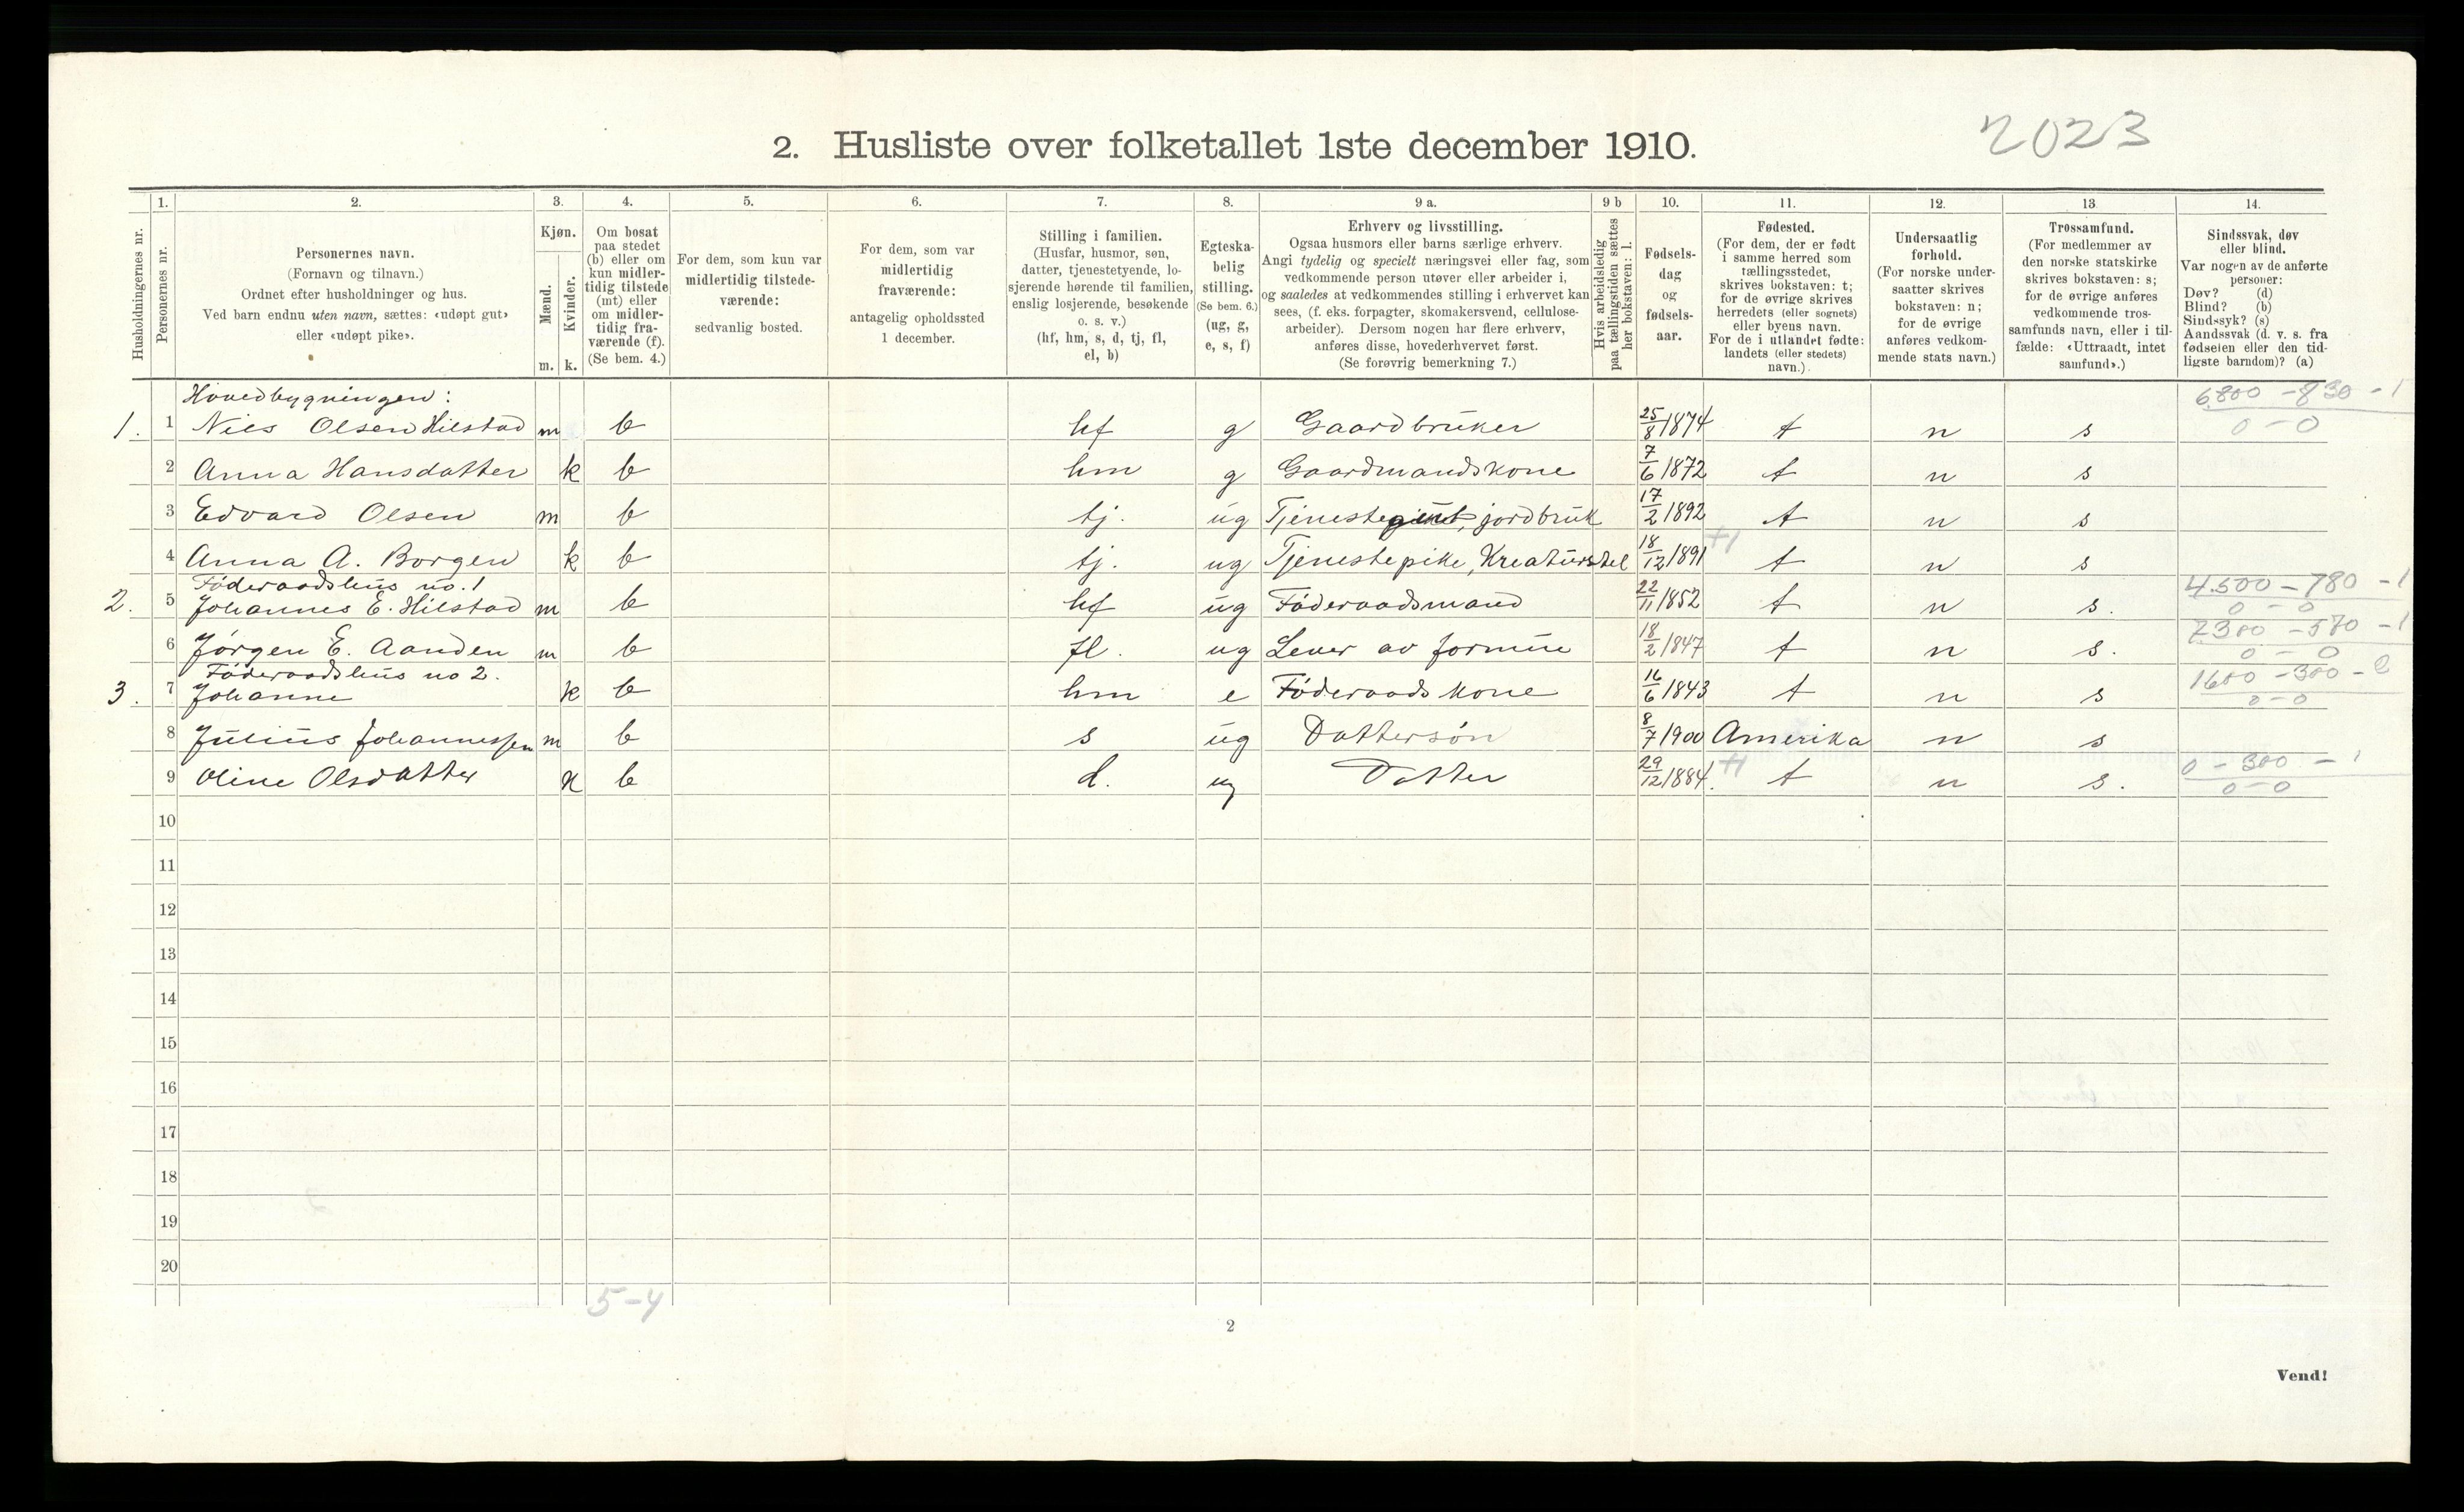 2. Husliste over folketallet 1ste december 1910.
2023
1. 2. 3. 4. 5. 6. 7. 8. 9 a. 9 b 10. 11. 12. 13. 14.
Husholdningernes nr.
Personernes nr.
Personernes navn.
(Fornavn og tilnavn.)
Ordnet efter husholdninger og hus.
Ved barn endnu uten navn, sættes: «udøpt gut»
eller «udøpt pike».
Kjøn.
Mænd.
Kvinder.
m. k.
Om bosat
paa stedet
(b) eller om
kun midler-
tidig tilstede
(mt) eller
om midler-
tidig fra-
værende (f).
(Se bem. 4.)
For dem, som kun var
midlertidig tilstede-
værende:
sedvanlig bosted.
For dem, som var
midlertidig
fraværende:
antagelig opholdssted
1 december.
Stilling i familien.
(Husfar, husmor, søn,
datter, tjenestetyende, lo-
sjerende hørende til familien,
enslig losjerende, besøkende
o. s. v.)
(hf, hm, s, d, tj, fl,
el, b)
Egteska-
belig
stilling.
(Se bem. 6.)
(ug, g,
e, s, f)
Erhverv og livsstilling.
Ogsaa husmors eller barns særlige erhverv.
Angi tydelig og specielt næringsvei eller fag, som
vedkommende person utøver eller arbeider i,
og saaledes at vedkommendes stilling i erhvervet kan
sees, (f. eks. forpagter, skomakersvend, cellulose-
arbeider). Dersom nogen har flere erhverv,
anføres disse, hovederhvervet først.
(Se forøvrig bemerkning 7.)
Hvis arbeidsledig
paa tællingstiden sættes
her bokstaven: l.
Fødsels-
dag
og
fødsels-
aar.
Fødested.
(For dem, der er født
i samme herred som
tællingsstedet,
skrives bokstaven: t;
for de øvrige skrives
herredets (eller sognets)
eller byens navn.
For de i utlandet fødte:
landets (eller stedets)
navn.)
Undersaatlig
forhold.
(For norske under-
saatter skrives
bokstaven: n;
for de øvrige
anføres vedkom-
mende stats navn.)
Trossamfund.
(For medlemmer av
den norske statskirke
skrives bokstaven: s;
for de øvrige anføres
vedkommende tros-
samfunds navn, eller i til-
fælde: «Uttraadt, intet
samfund».)
Sindssvak, døv
eller blind.
Var nogen av de anførte
personer:
Døv? (d)
Blind? (b)
Sindssyk? (s)
Aandssvak (d. v. s. fra
fødselen eller den tid-
ligste barndom)? (a)
Hovedbygningen: 6800 - 830 - 1
1. 1 Niels Olsen Hilstad m b hf g Gaardbruker 25/8 1874 t n s 0 - 0
2 Anna Hansdatter k b hm g Gaardmandskone 7/6 1872 t n s
3 Edvard Olsen m b tj. ug Tjenestegut, jordbruk 17/2 1892 t n s
4 Anna A. Borgen k b tj. ug Tjenestepike, Kreaturstel 18/12 1891 t n s
Föderaadshus no. 1 4.500 - 780 - 1
2. 5 Johannes E. Hilstad m b hf ug Föderaadsmand 22/11 1852 t n s. 0 - 0
7300 - 570 - 1
6 Jörgen E. Aanden m b fl. ug Lever av formue 18/2 1847 t n s. 0 - 0
Föderaadshus no 2. 1600 - 300 - 2
3. 7 Johanne k b hm e Föderaadskone 16/6 1843 t n s 0 - 0
8 Julius Johannessen m b s ug Dattersön 8/7 1900 Amerika n s
9 Oline Olsdatter k b d. ug Datter 29/12 1884. t n s. 0 - 300 - 1
0 - 0
10
11
12
13
14
15
16
17
18
19
20
5-4
2
Vend!